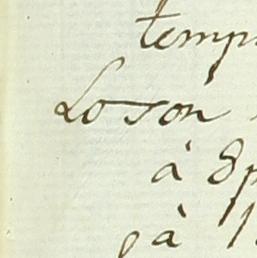 temps
Loson
à 8p
à 1